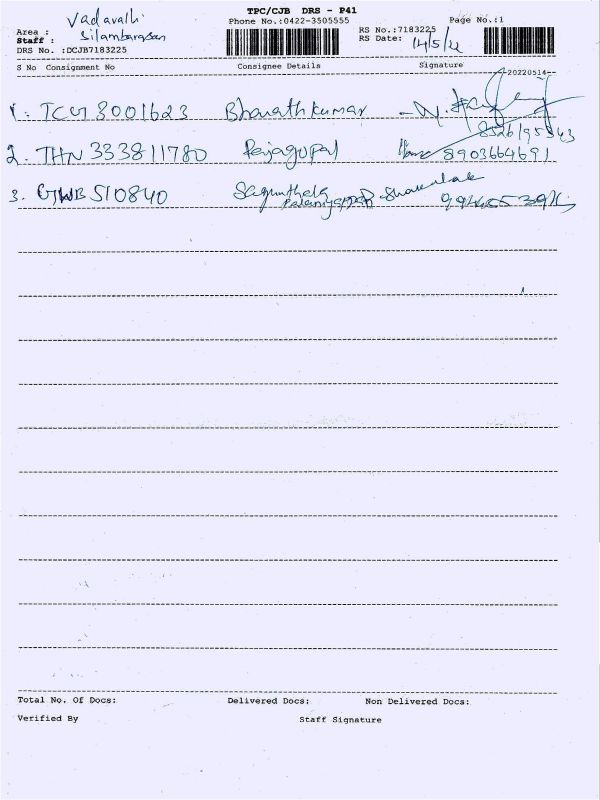 TPC/CJB DRS - P41
Area : Vadavalli
Phone No.:0422-3505555
Page No.:1
Staff : Silambarasan
RS No.:7183225
DRS No. :DCJB7183225
RS Date: 14/5/22
S No Consignment No Consignee Details Signature
20220514
1. TCG 8001623 Bharathkumar
2. THN 333811780 Rajagopal 8903664691
3. Sagunthala
Palaniyappan
Total No. Of Docs: Delivered Docs: Non Delivered Docs:
Verified By Staff Signature